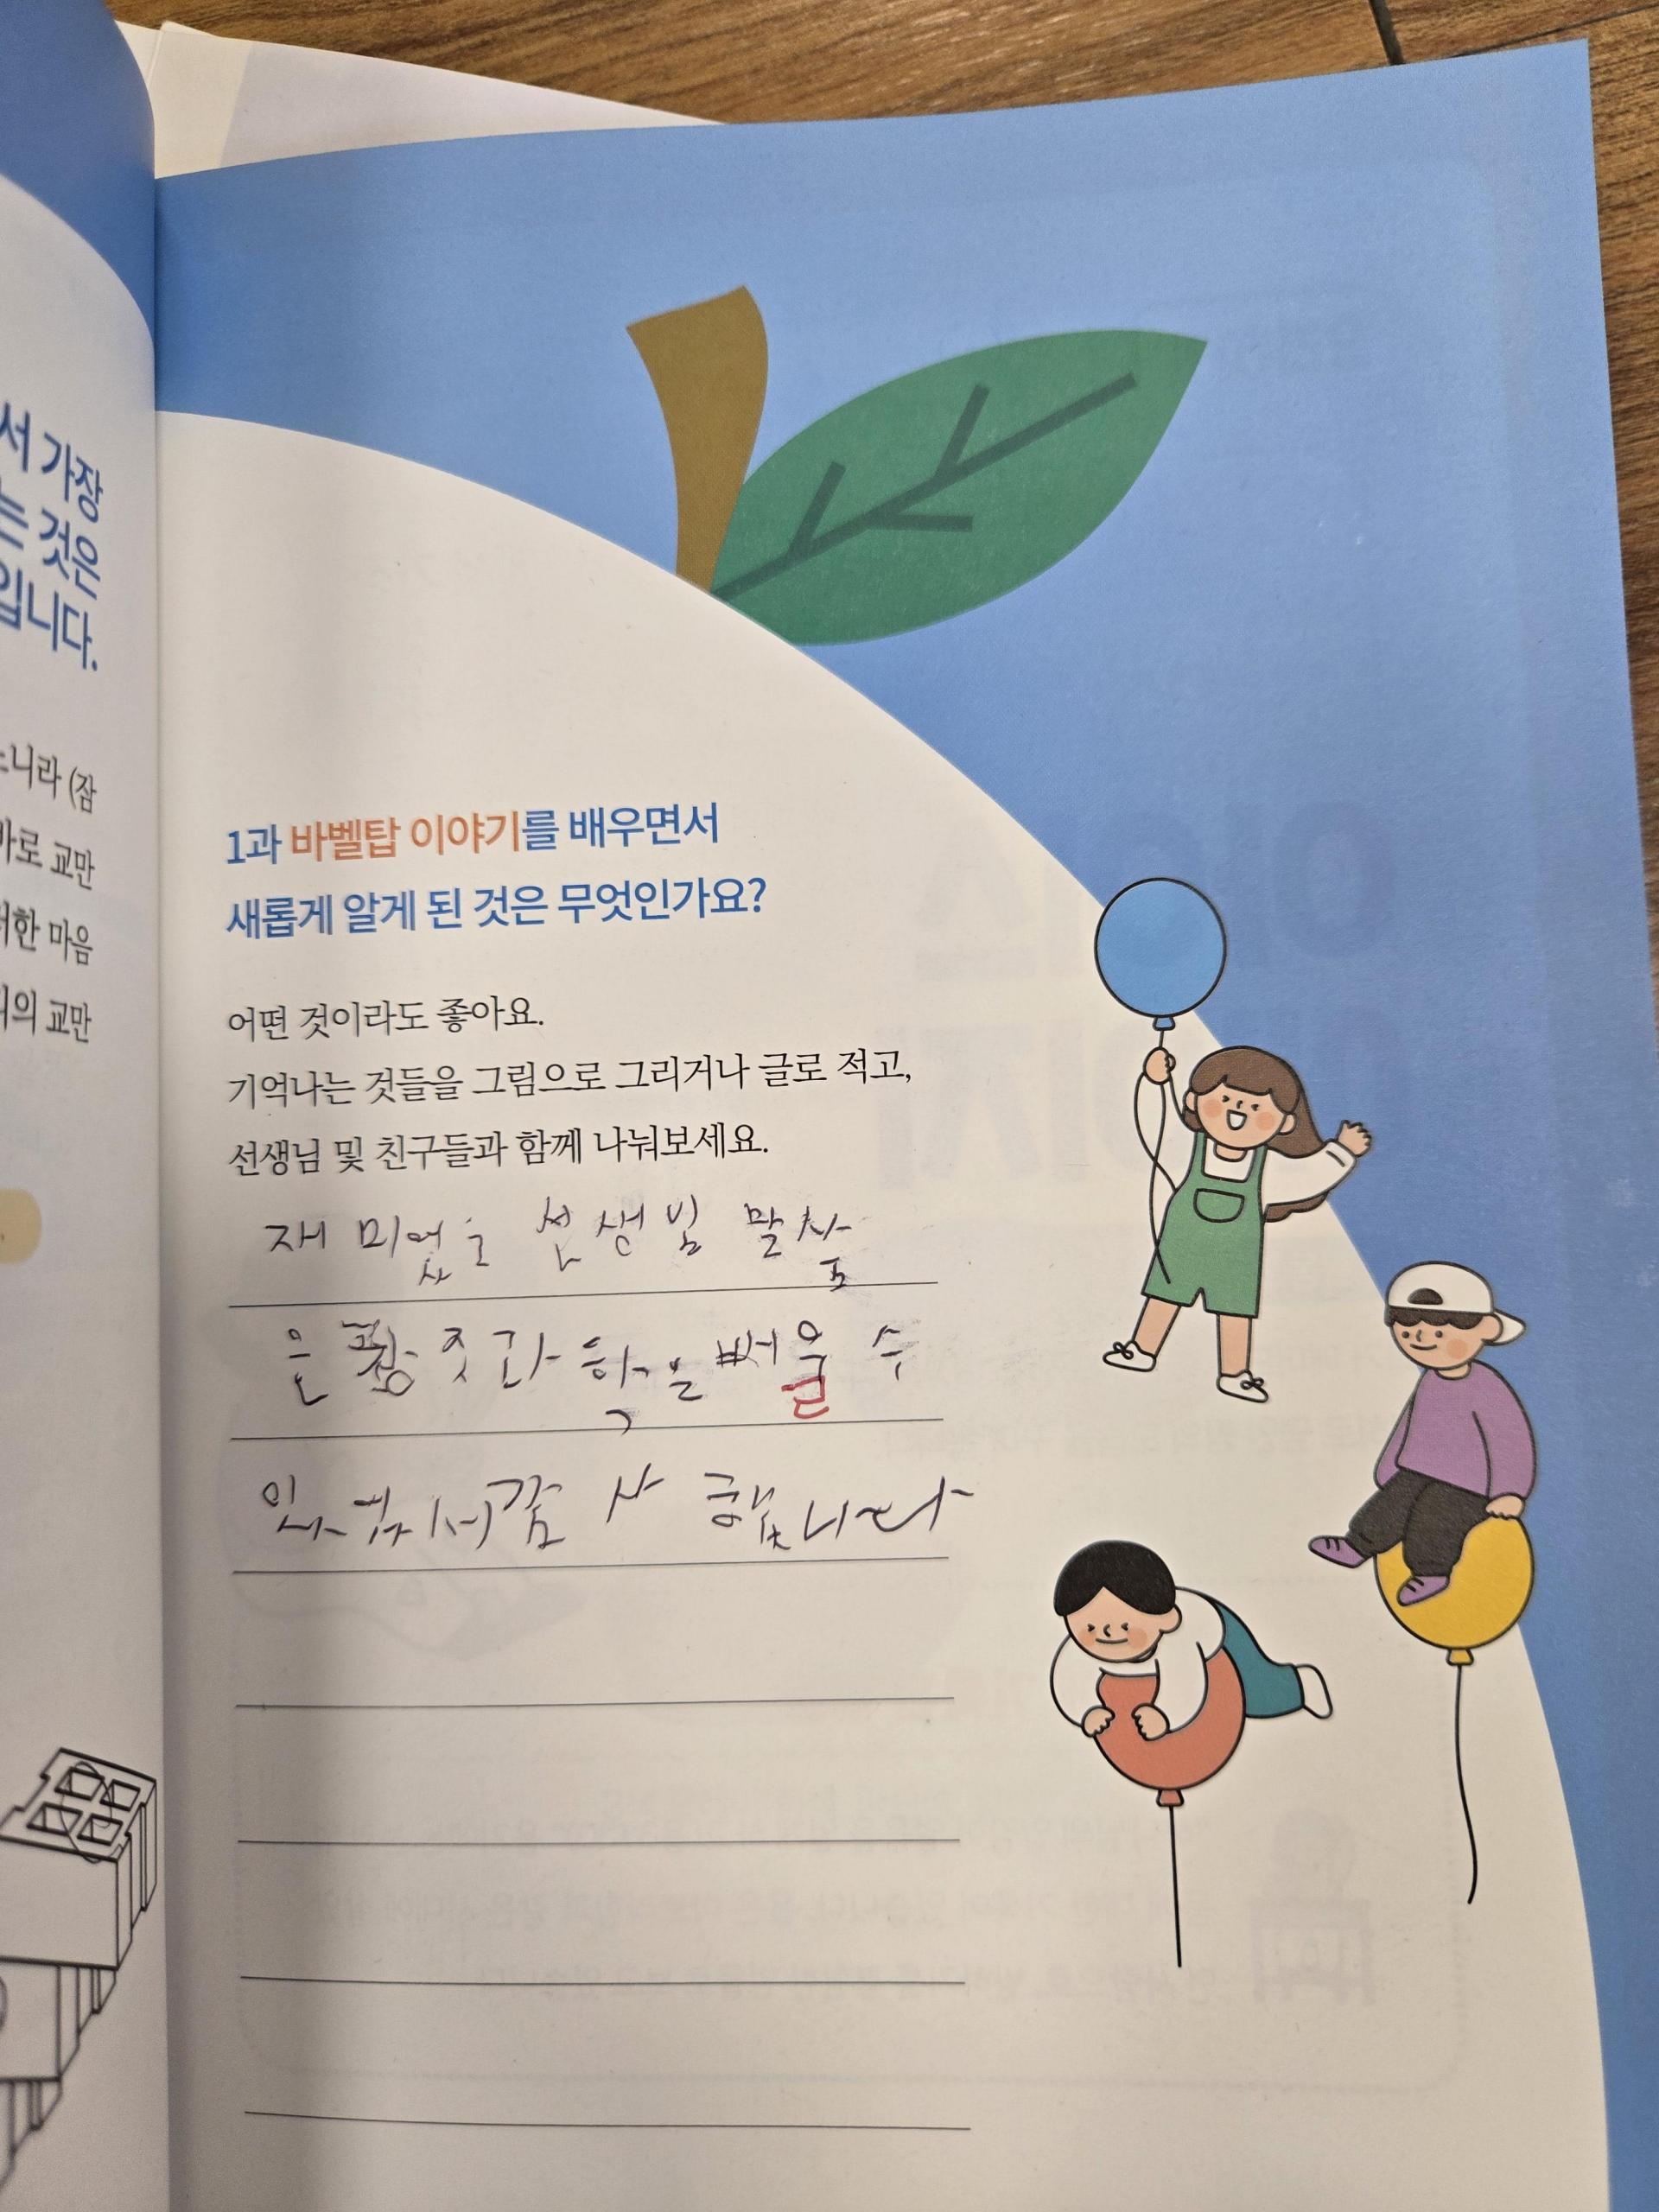 서 가장
는 것은
입니다.
니라 (잠
바로 교만
러한 마음
의 교만
1과 바벨탑 이야기를 배우면서
새롭게 알게 된 것은 무엇인가요?
어떤 것이라도 좋아요.
기억나는 것들을 그림으로 그리거나 글로 적고,
선생님 및 친구들과 함께 나눠보세요.
재미었는 선생님 말
은 과학을 배울 수
있 서 감사 합니다